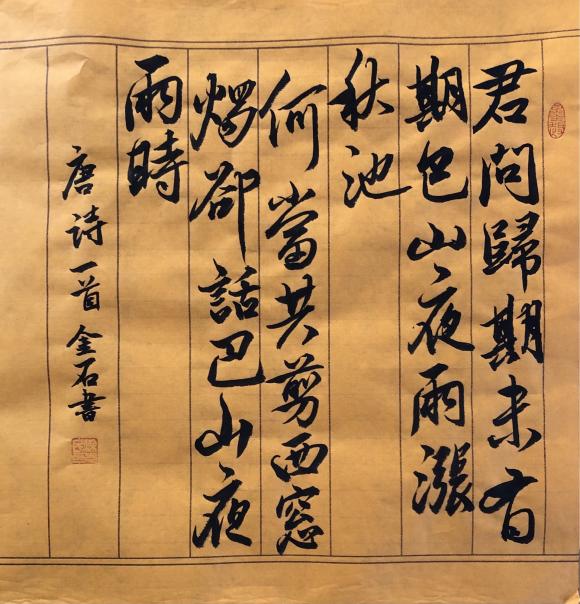 君問歸期未有
期巴山夜雨漲
秋池
何當共剪西窗
燭卻話巴山夜
雨時
唐詩一首金石書